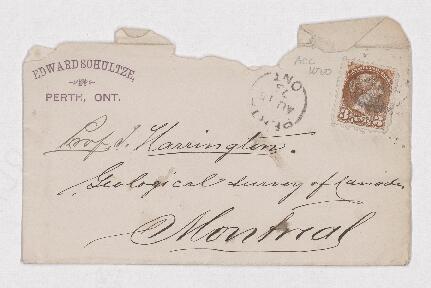 EDWARD SCHULTZE,
PERTH, ONT.
ACC
PERTH
ONT
AU 15
3 3
Prof. J. Harrington.
Geological Survey of Canada
Montreal